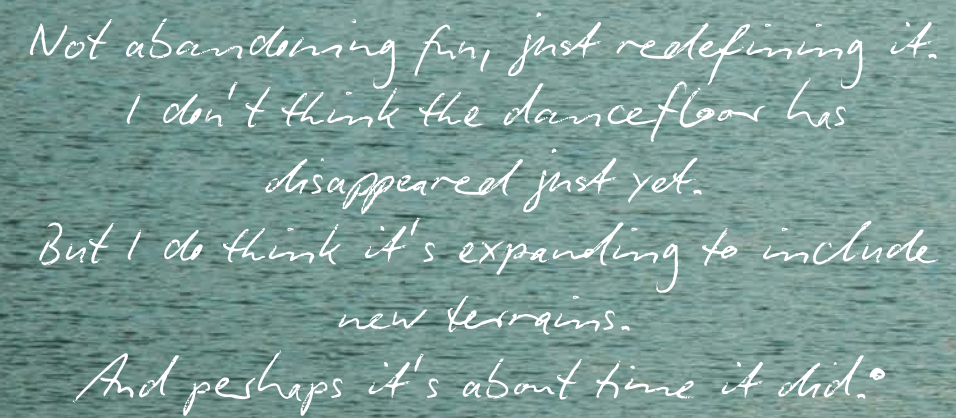 Not abandoning fun, just redefining it.
I don't think the dancefloor has
disappeared just yet.
But I do think it's expanding to include
new terrains.
And perhaps it's about time it did.